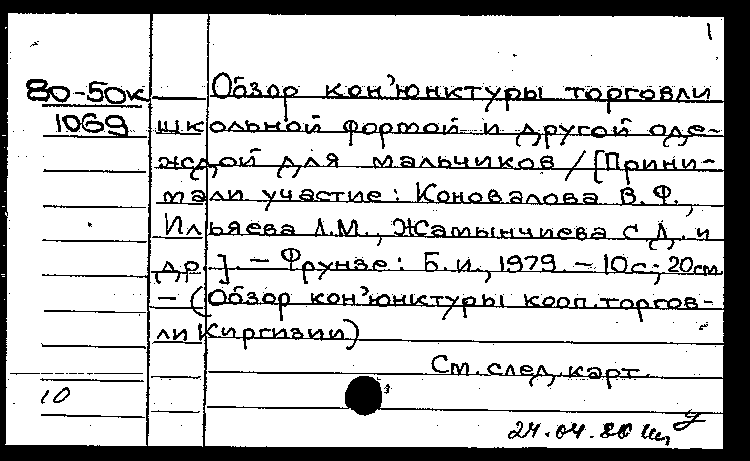 1
80-50к Обзор кон'юнктуры торговли
1069 школьной формой и другой оде-
ждой для мальчиков / [Прини-
мали участие: Коновалова В.Ф.,
Ильяева Л.М., Жамынчиева С.Д. и
др.]. - Фрунзе: Б.и., 1979. - 10с; 20см.
- (Обзор кон'юнктуры кооп.торгов-
ли Киргизии)
См. след. карт.
10
24.04.80